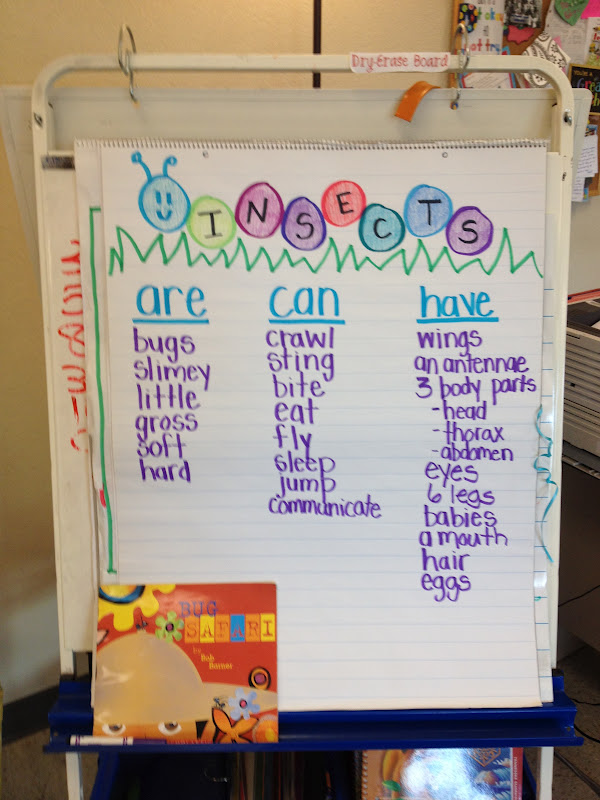 Dry-Erase Board
INSECTS
are
bugs
slimey
little
gross
soft
hard
can
crawl
sting
bite
eat
fly
sleep
jump
communicate
have
wings
an antennae
3 body parts
-head
-thorax
-abdomen
eyes
6 legs
babies
a mouth
hair
eggs
BUG
SAFARI
by
Bob
Barner